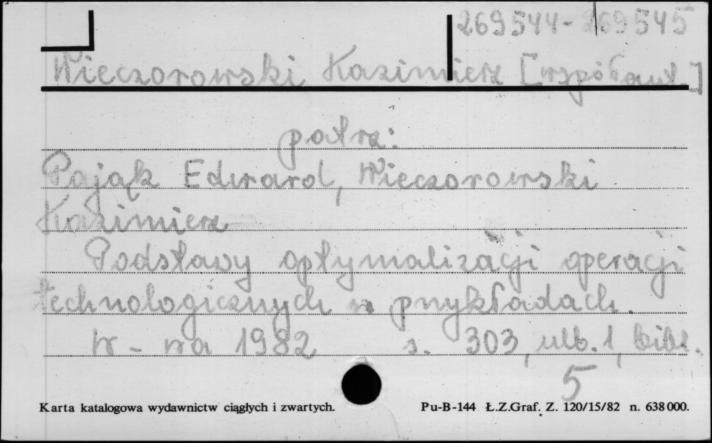 269544-269545
Wieczorowski Kazimierz [współaut.]
patrz:
Pająk Edward, Wieczorowski
Kazimierz
Podstawy optymalizacji operacji
technologicznych w przykładach.
W-wa 1982 s. 303, ulb. 1, bibl.
5
Karta katalogowa wydawnictw ciągłych i zwartych. Pu-B-144 Ł.Z.Graf. Z. 120/15/82 n. 638000.